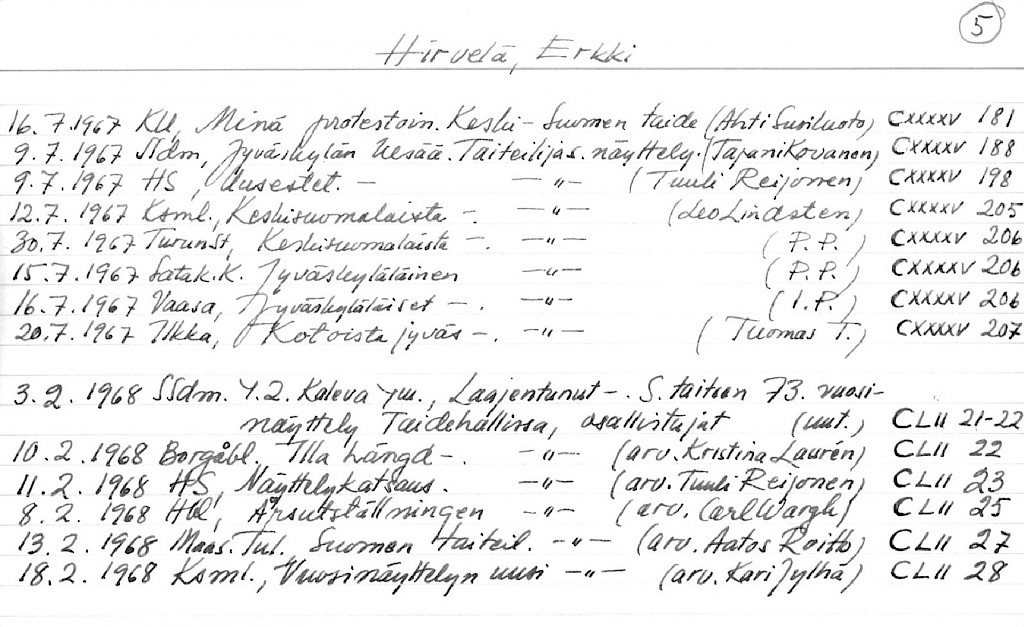 5
Hirvelä, Erkki
16.7.1967 KU, Minä protestoin. Keski-Suomen taide (Ahti Susiluoto) CXXXXV 181
9.7.1967 SSdm, Jyväskylän Kesää. Taiteilijas. näyttely. (Tapani Kovanen) CXXXXV 188
9.7.1967 HS, Uusestet. — —"— (Tuuli Reijonen) CXXXXV 198
12.7.1967 Ksml., Keskisuomalaista —. —"— (Leo Lindsten) CXXXXV 205
30.7.1967 TurunSt, Keskisuomalaista —. —"— (P.P.) CXXXXV 206
15.7.1967 Satak.K. Jyväskyläläinen —"— (P.P.) CXXXXV 206
16.7.1967 Vaasa, Jyväskyläläiset —. —"— (I.P.) CXXXXV 206
20.7.1967 Ilkka, Kotoista jyväs —. —"— (Tuomas T.) CXXXXV 207
3.2.1968 SSdm. Y.2. Kaleva ym., Laajentunut —. S. taiteen 73. vuosi-
näyttely Taidehallissa, osallistujat (uut.) CLII 21-22
10.2.1968 Borgåbl. Illa hängd —. —"— (arv. Kristina Laurén) CLII 22
11.2.1968 HS, Näyttelykatsaus. —"— (arv. Tuuli Reijonen) CLII 23
8.2.1968 Hbl, Årsutställningen —"— (arv. Carl Wargh) CLII 25
13.2.1968 Maas.Tul. Suomen Taiteil. —"— (arv. Aatos Roitto) CLII 27
18.2.1968 Ksml., Vuosinäyttelyn uusi —"— (arv. Kari Jylhä) CLII 28